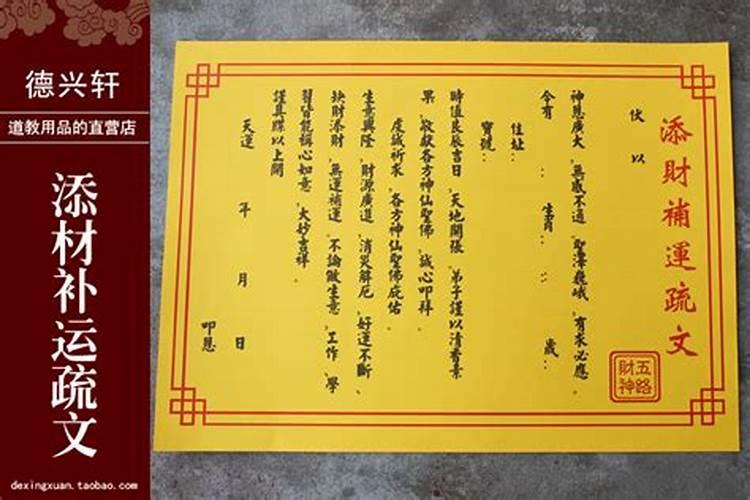 德兴轩
道教用品的直营店
添材补运疏文
dexingxuan.taobao.com
添財補運疏文
五路
財神
伏以
神恩廣大、無感不通、聖澤巍峨、有求必應。
今有 : 生肖 : : 歲:
住址:
寶號:
時值良辰吉日、天地開張、弟子謹以清香素
果、敬獻各方神仙聖佛、誠心叩拜。
虔誠祈求、各方神仙聖佛庇佑。
生意興隆、財源廣進、消災解厄、好運不斷、
缺財添財、無運補運、不論做生意、工作、學
習皆能稱心如意、大妙吉祥。
謹具疏以上聞
天運 年 月 日
叩恩